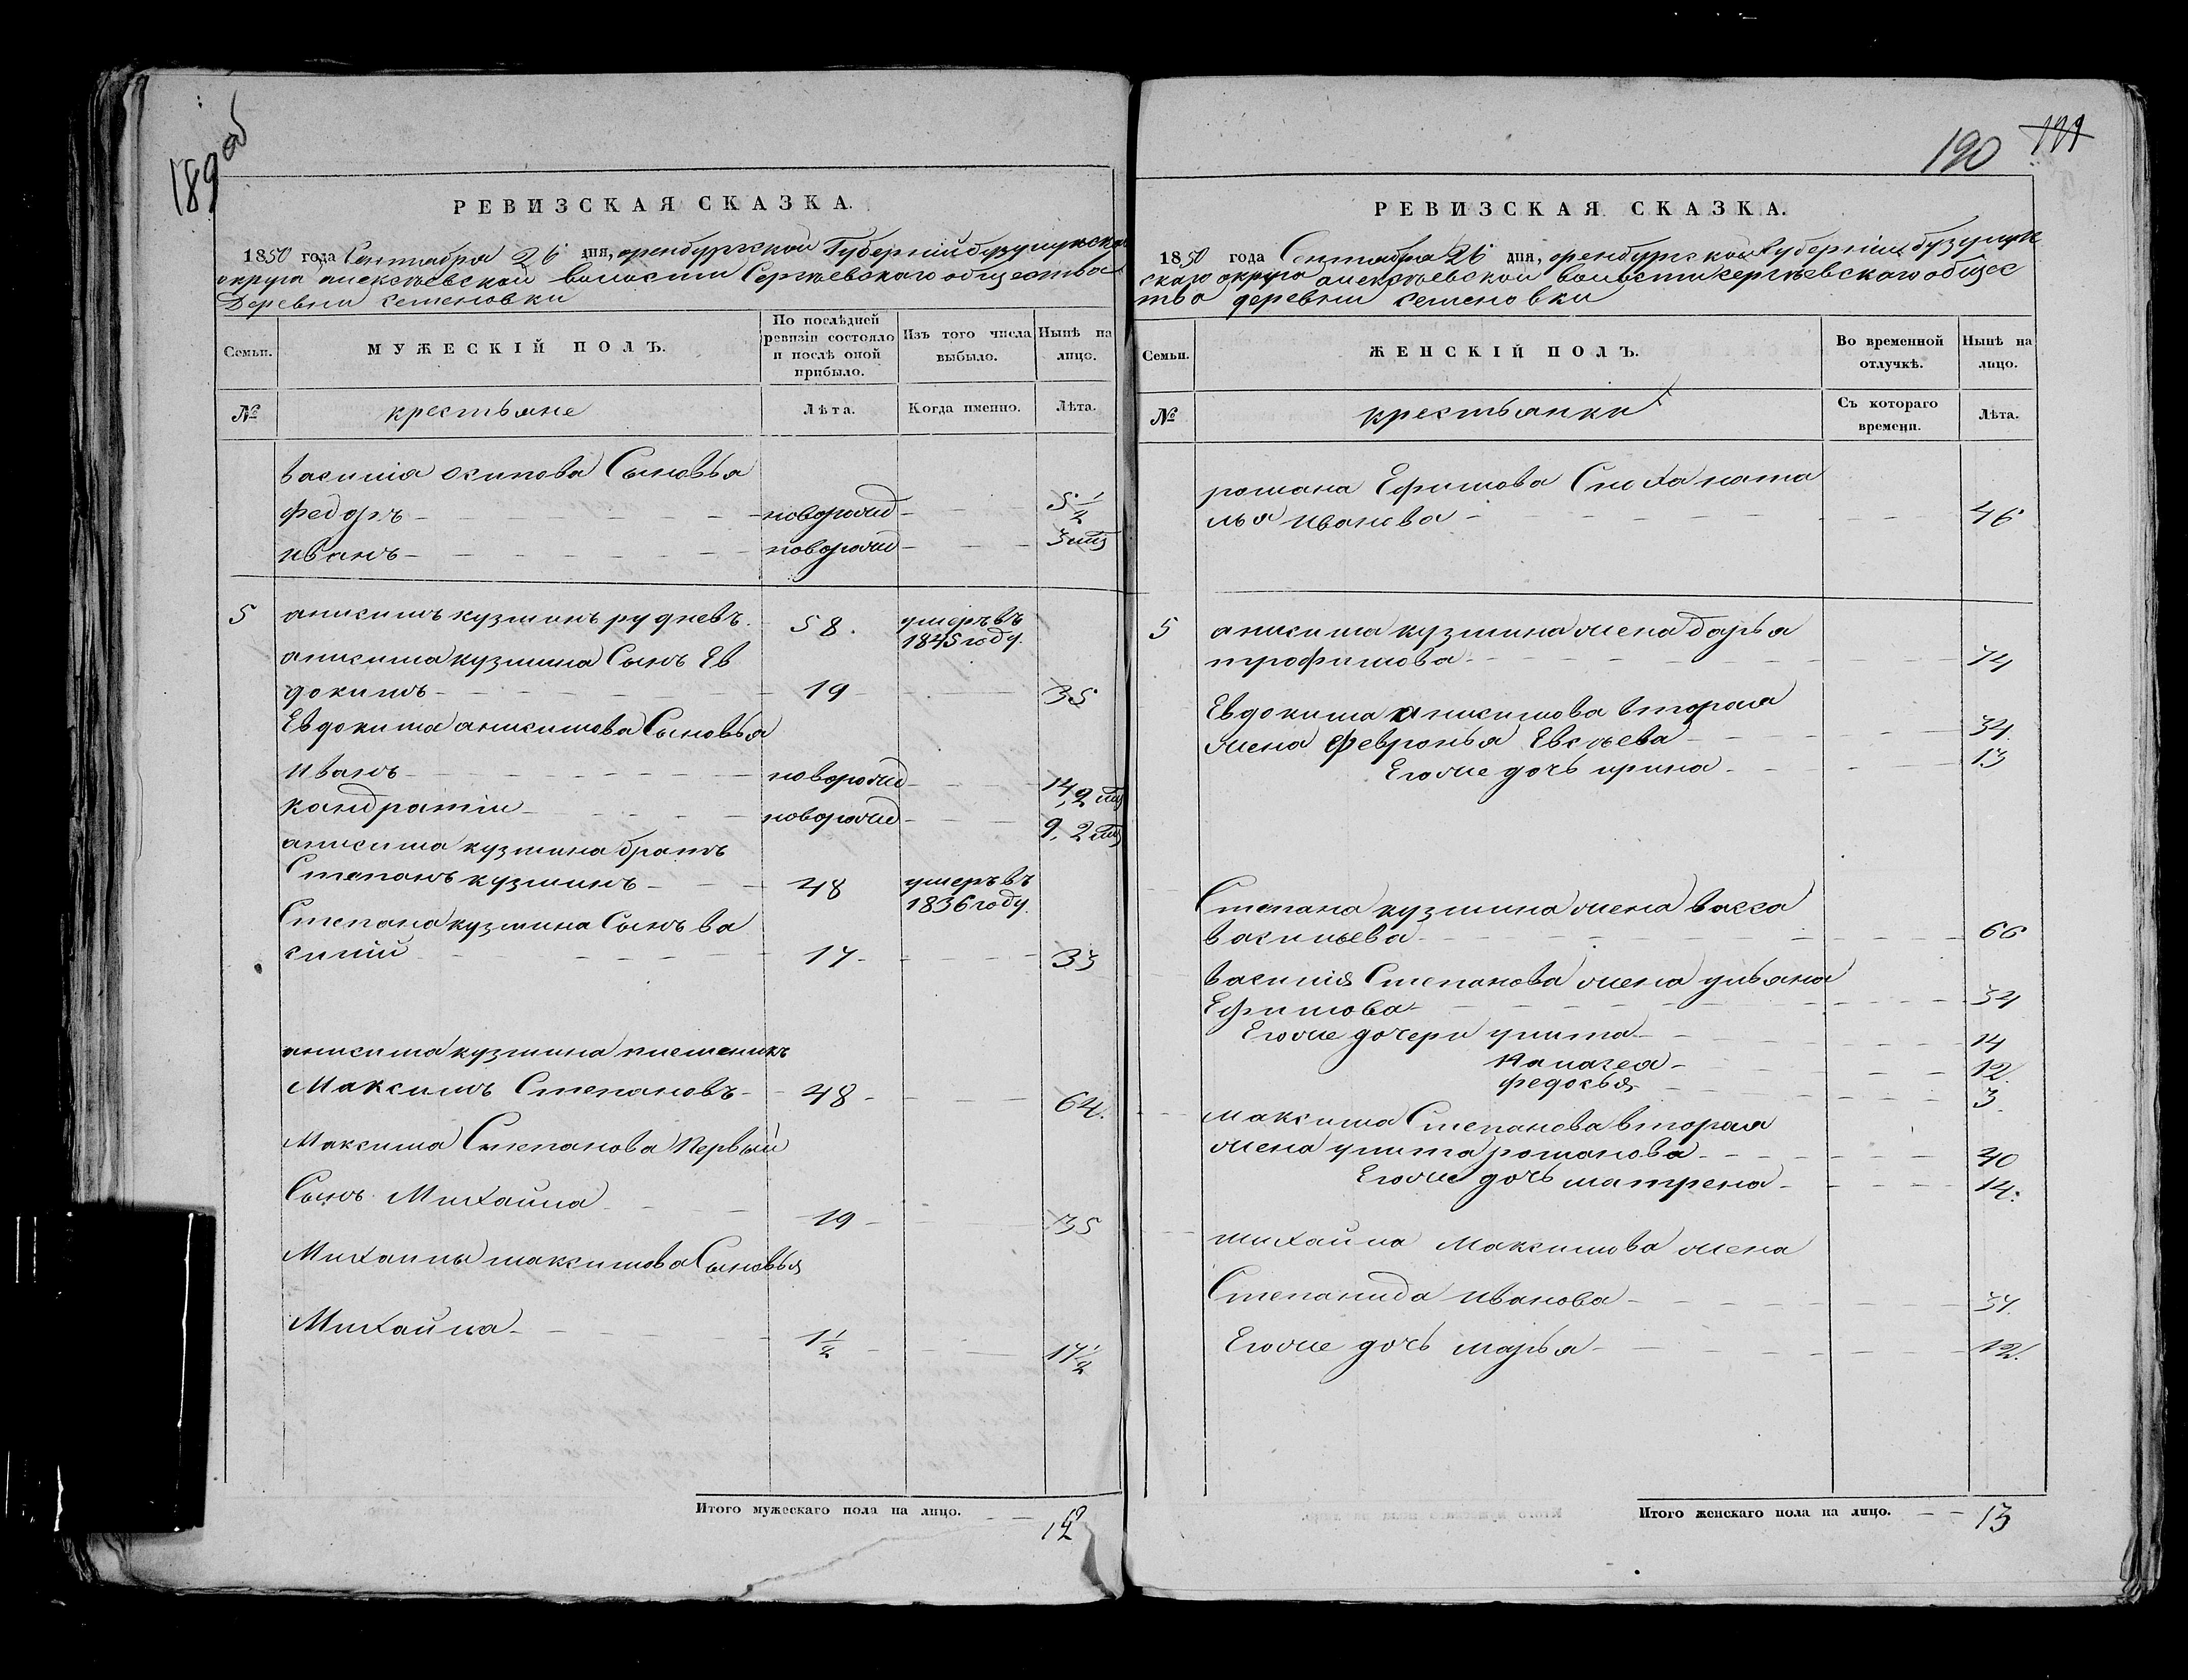 189 об
РЕВИЗСКАЯ СКАЗКА.
1850 года Сентября 26 дня, оренбургской Губерніи бузулукска
округа алексѣевской волости Сергѣевскаго общества
Деревни семеновки
Семьи.
МУЖЕСКІЙ ПОЛЪ.
По послѣдней ревизіи состояло и послѣ оной прибыло.
Изъ того числа выбыло.
Нынѣ на лицо.
№
крестьяне
Лѣта.
Когда именно.
Лѣта.
василія осипова Сыновья
федоръ - новорожд - 5 1/2
иванъ - новорожд - 3 мц
5 анисимъ кузминъ рудневъ. 58. умеръ въ
1845 году.
анисима кузмина Сынъ Ев
докимъ - 19 - 35
Евдокима анисимова Сыновья
иванъ - новорожд - 14, 2 мц
кандратіи - новорожд - 9, 2 мц
анисима кузмина братъ
Степанъ кузминъ - 48 умеръ въ
1836 году.
Степана кузмина Сынъ ва
силій - 17 - 33
анисима кузмина племеникъ
Максимъ Степановъ - 48 - 64.
Максима Степанова Первый
Сынъ Михаила - 19 - 35
Михаилы максимова Сыновья
Михайла - 1 1/2 - 17 1/2
Итого мужескаго пола на лицо. -
190
РЕВИЗСКАЯ СКАЗКА.
1850 года Сентября 26 дня, оренбургской Губерніи бузулук
скаго округа алексѣевской волости сергѣевскаго общес
тва деревни семеновки
Семьи.
ЖЕНСКІЙ ПОЛЪ.
Во временной отлучкѣ.
Нынѣ на лицо.
№
крестьянки
Съ котораго времени.
Лѣта.
романа Ефимова Сноха ната
лья иванова - 46
5 анисима кузмина жена дарья
трофимова - 74
Евдокима анисимова вторая
жена февронья Евсѣева - 34
Его же дочь ирина - 13
Степана кузмина жена васса
васильева - 66
василія Степанова жена ульяна
Ефимова - 34
Его же дочери улита - 14
палагея - 12.
федосья - 3.
максима Степанова вторая
жена улита романова - 40
Его же дочь матрена - 14.
михайла Максимова жена
Степанида иванова - 37.
Его же дочь марья - 12.
Итого женскаго пола на лицо. - 13